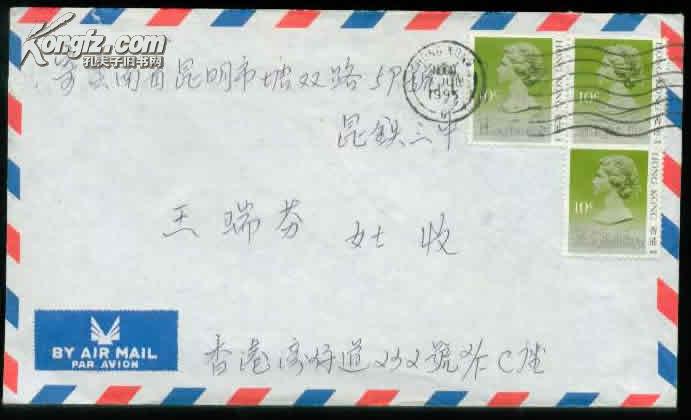 Kongfz.com
孔夫子旧书网
寄云南省昆明市塘双路
昆鉄三中
王瑞芬 女士 收
香港 道232號 C座
HONG KONG
1995
10c
HONG KONG 香港
10c
HONG KONG 香港
10c
HONG KONG 香港
BY AIR MAIL
PAR AVION